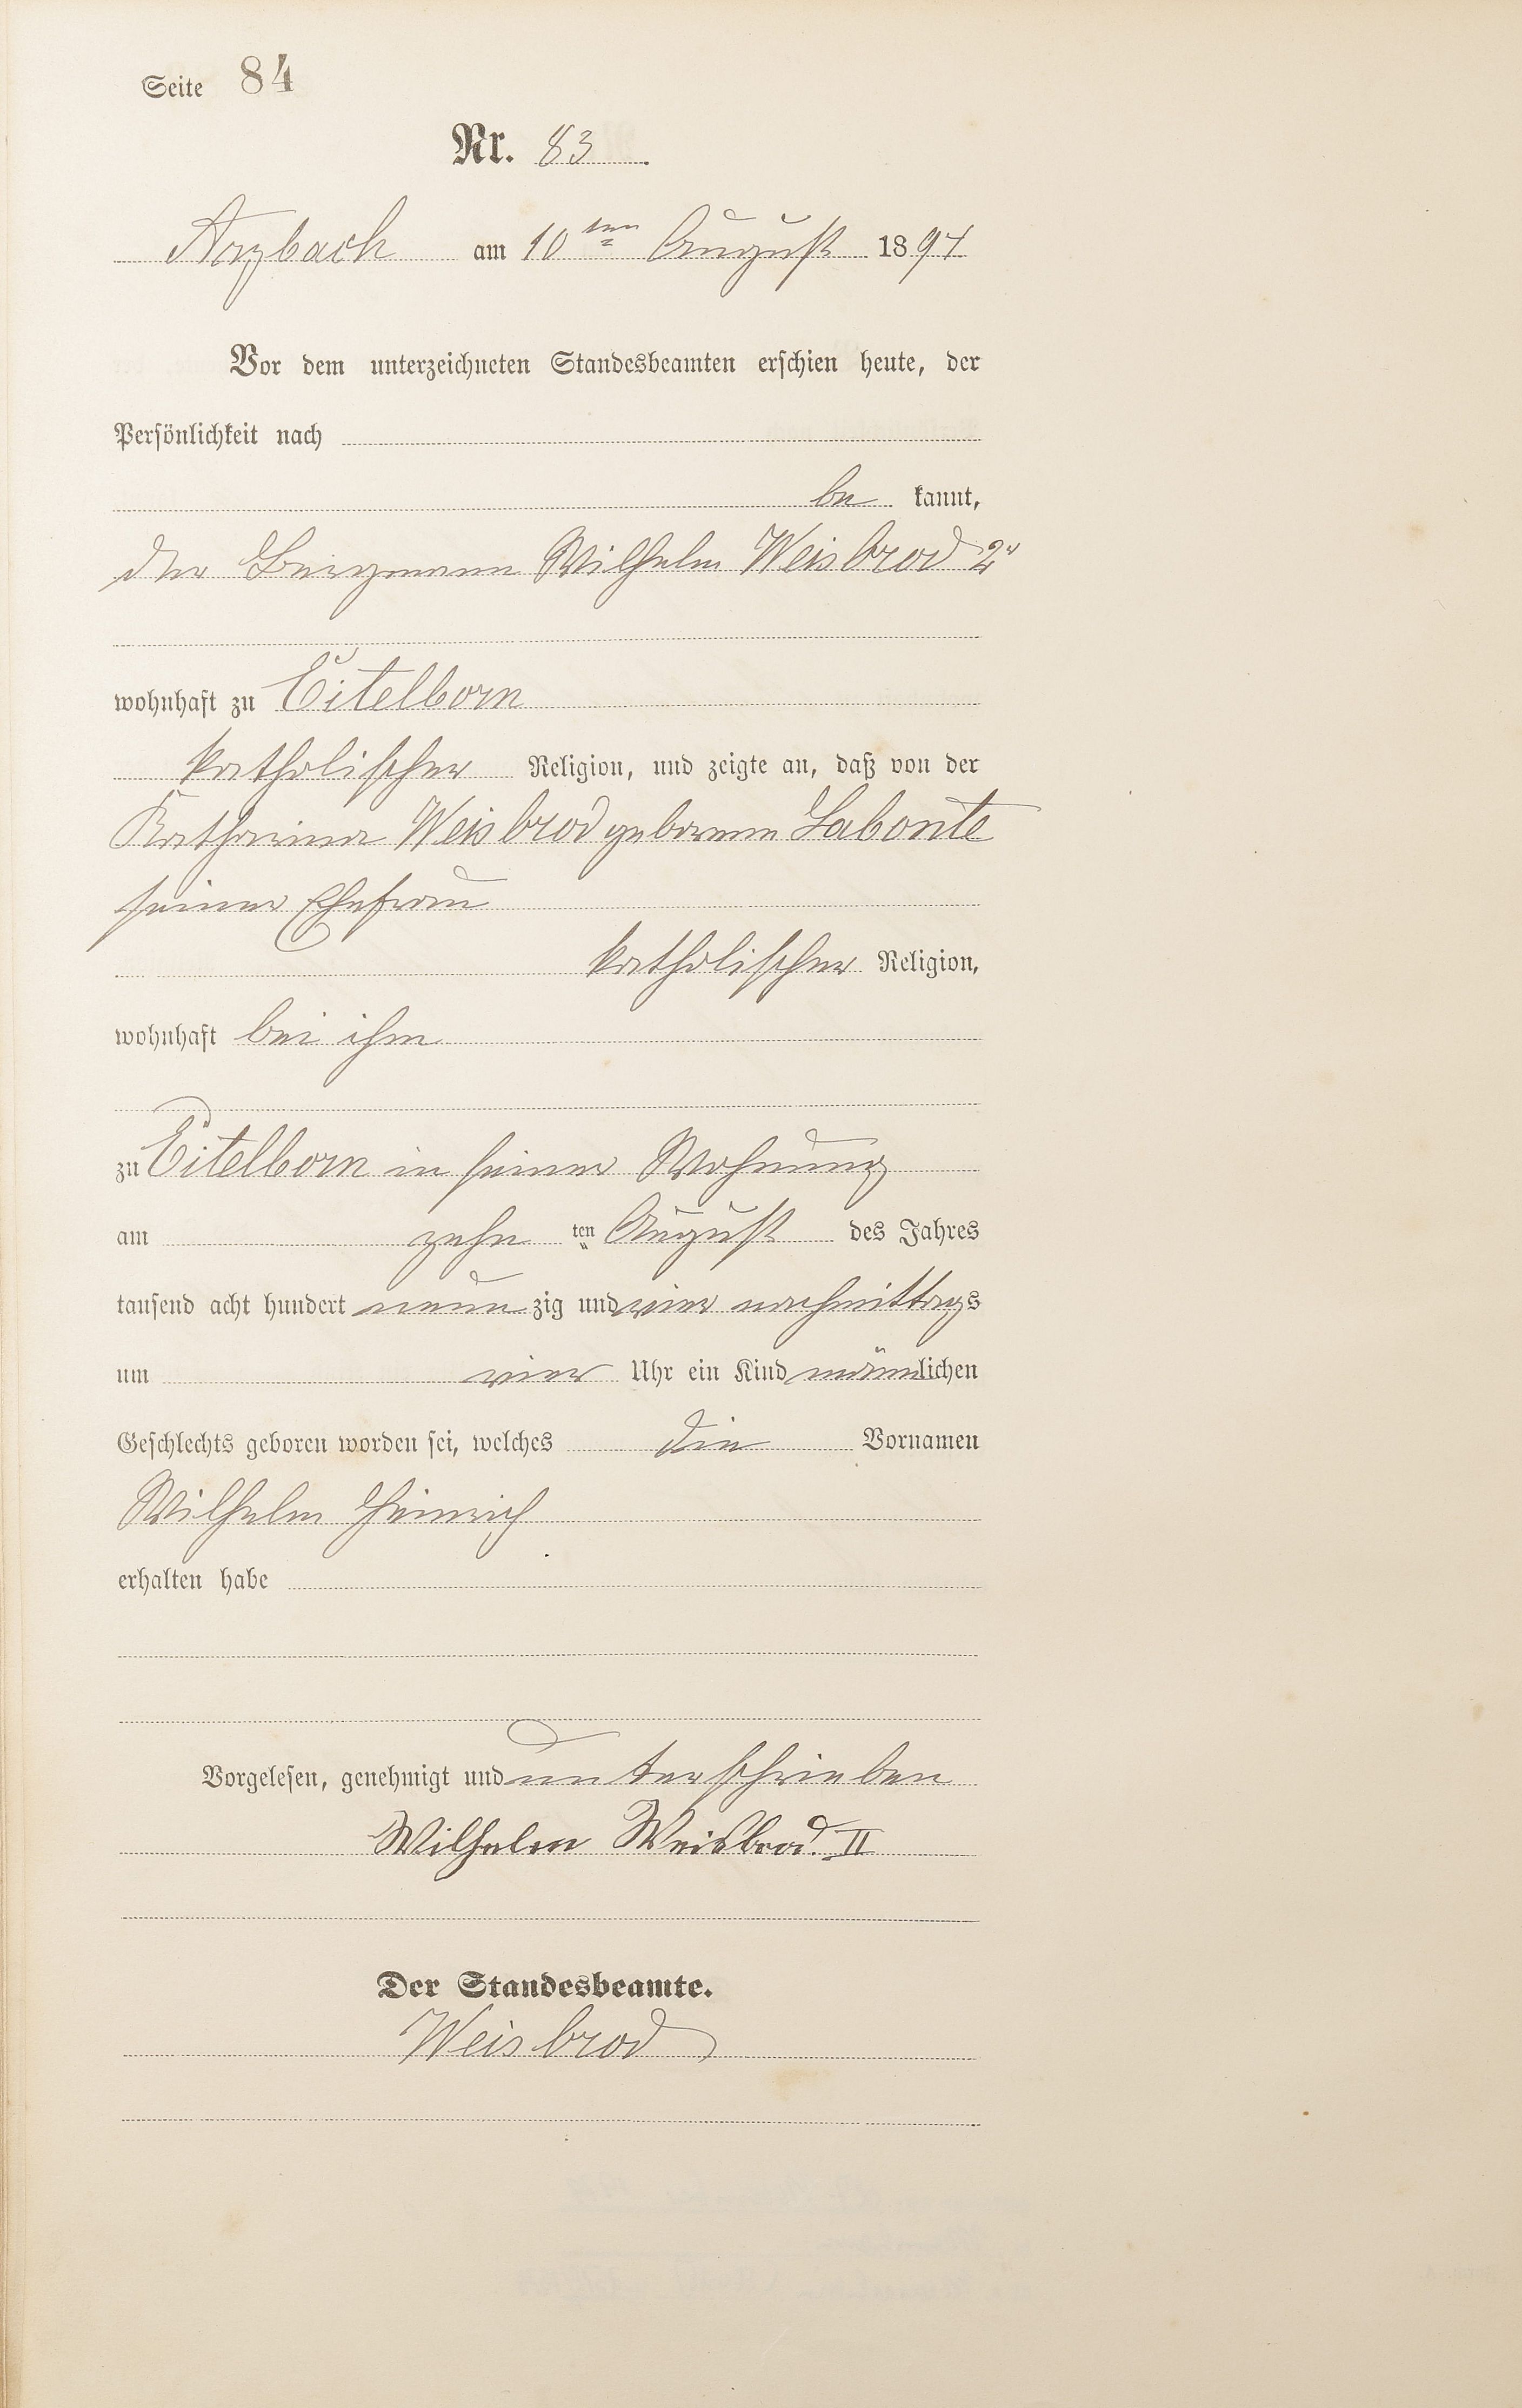 Seite 84
Nr. 83.
Arzbach am 10ten August 1894
Vor dem unterzeichneten Standesbeamten erschien heute, der
Persönlichkeit nach
be kannt,
der Bergmann Wilhelm Weisbrod 2r
wohnhaft zu Eitelborn
katholischer Religion, und zeigte an, daß von der
Katharina Weisbrod geborenen Labonte
seiner Ehefrau
katholischer Religion,
wohnhaft bei ihm
zu Eitelborn in seiner Wohnung
am zehn ten August des Jahres
tausend acht hundert neun zig und vier nachmittags
um vier Uhr ein Kind männlichen
Geschlechts geboren worden sei, welches die Vornamen
Wilhelm Heinrich
erhalten habe
Vorgelesen, genehmigt und unterschrieben
Wilhelm Weisbrod. II
Der Standesbeamte.
Weisbrod